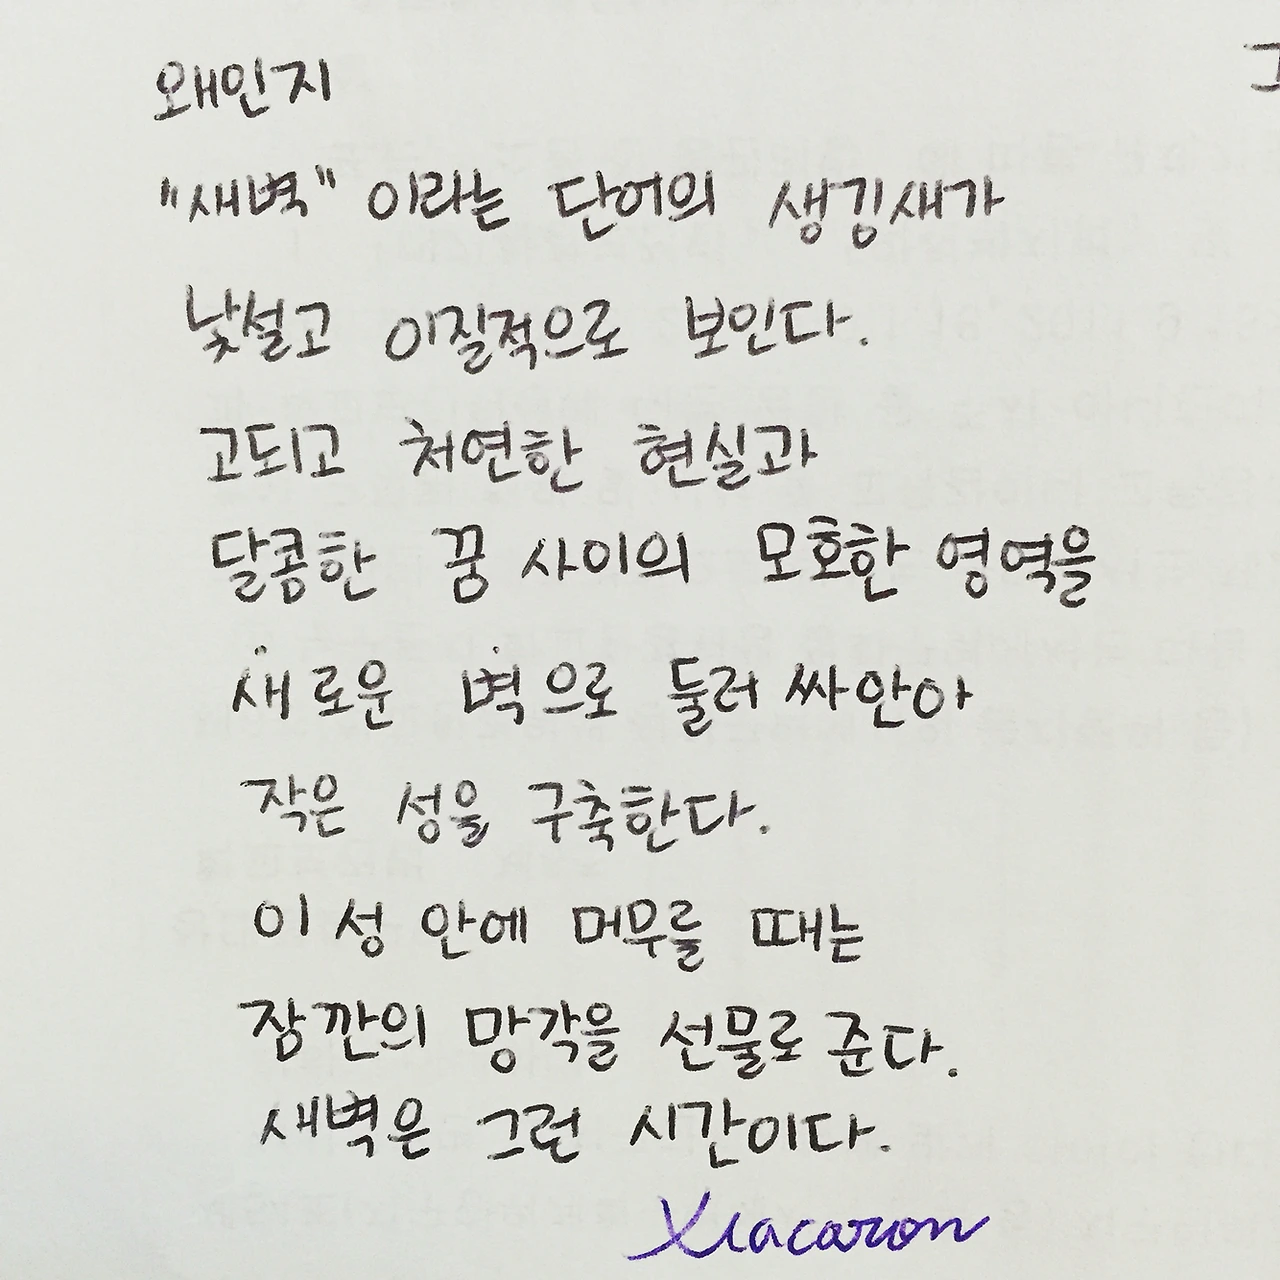 왜인지
"새벽" 이라는 단어의 생김새가
낯설고 이질적으로 보인다.
고되고 처연한 현실과
달콤한 꿈 사이의 모호한 영역을
새로운 벽으로 둘러 싸안아
작은 성을 구축한다.
이 성 안에 머무를 때는
잠깐의 망각을 선물로 준다.
새벽은 그런 시간이다.
Xiacaron